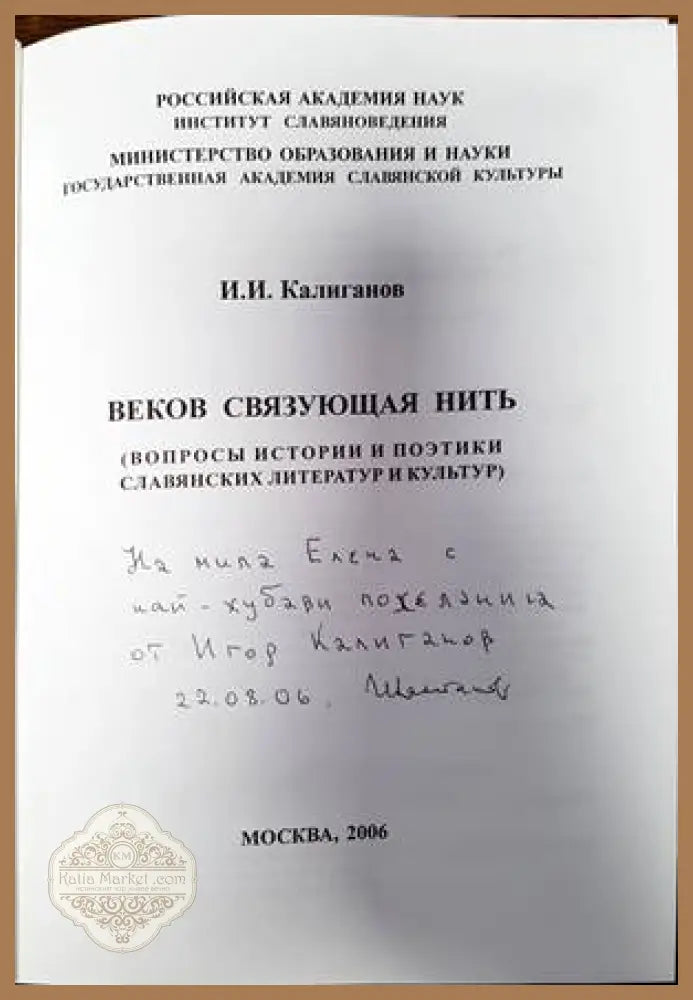 РОССИЙСКАЯ АКАДЕМИЯ НАУК
ИНСТИТУТ СЛАВЯНОВЕДЕНИЯ
МИНИСТЕРСТВО ОБРАЗОВАНИЯ И НАУКИ
ГОСУДАРСТВЕННАЯ АКАДЕМИЯ СЛАВЯНСКОЙ КУЛЬТУРЫ
И.И. Калиганов
ВЕКОВ СВЯЗУЮЩАЯ НИТЬ
(ВОПРОСЫ ИСТОРИИ И ПОЭТИКИ
СЛАВЯНСКИХ ЛИТЕРАТУР И КУЛЬТУР)
На мила Елена с
най-хубави пожелания
от Игор Калиганов
22.08.06.
МОСКВА, 2006
KM
Kalia Market .com